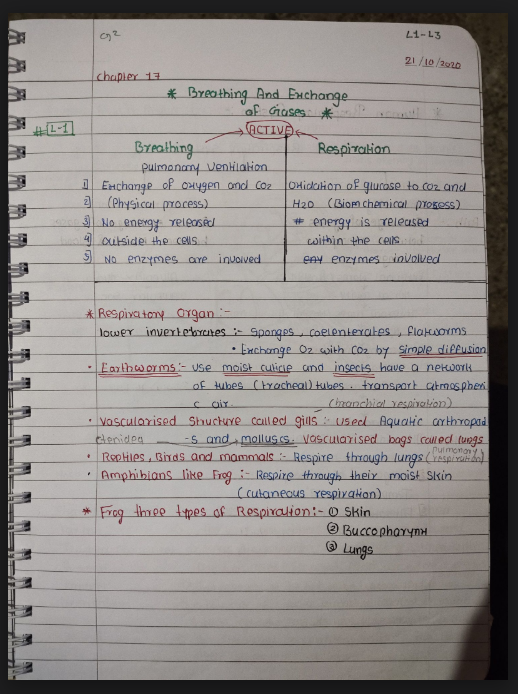 L1-L3
21/10/2020
chapter 17
* Breathing And Exchange
of Gases *
# L-1
ACTIVE
Breathing
Respiration
pulmonary Ventilation
1) Exchange of oxygen and CO2
Oxidation of glucase to co2 and
2) (Physical process)
H2O (Biomchemical process)
3) No energy released
# energy is released
4) outside the cells
within the cells
5) No enzymes are involved
enzymes involved
* Respiratory Organ :-
lower invertebrates :- sponges, coelenterates, flatworms
• Exchange O2 with CO2 by simple diffusion
• Earthworms :- use moist cuticle and insects have a network
of tubes (tracheal) tubes . transport atmospheri
c air.
(branchial respiration)
• Vascularised structure called gills :- used Aquatic arthropod
s and molluscs. Vascularised bags called lungs
• Reptiles, Birds and mammals :- Respire through lungs (Pulmonary respiration)
• Amphibians like Frog :- Respire through their moist skin
(cutaneous respiration)
* Frog three types of Respiration :- ① Skin
② Buccopharynx
③ Lungs